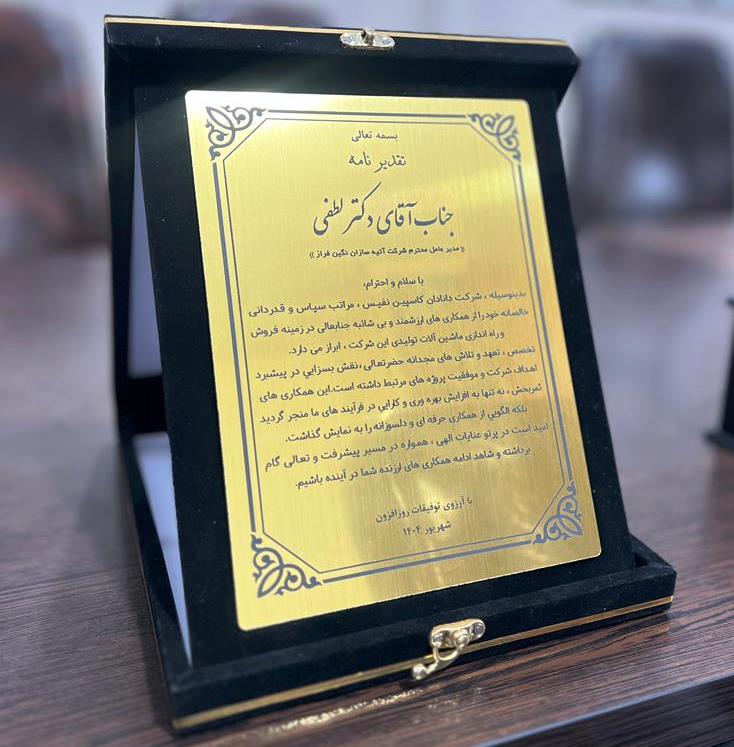 بسمه تعالی
تقدیر نامه
جناب آقای دکتر لطفی
(( مدیر عامل محترم شرکت آتیه سازان نگین فراز ))
با سلام و احترام،
بدینوسیله ، شرکت دانادان کاسپین نفیس ، مراتب سپاس و قدردانی
خالصانه خود را از همکاری های ارزشمند و بی شائبه جنابعالی در زمینه فروش
و راه اندازی ماشین آلات تولیدی این شرکت ، ابراز می دارد.
تخصص ، تعهد و تلاش های مجدانه حضرتعالی ، نقش بسزایی در پیشبرد
اهداف شرکت و موفقیت پروژه های مرتبط داشته است.این همکاری های
ثمربخش ، نه تنها به افزایش بهره وری و کارایی در فرآیند های ما منجر گردید
بلکه الگویی از همکاری حرفه ای و دلسوزانه را به نمایش گذاشت.
امید است در پرتو عنایات الهی ، همواره در مسیر پیشرفت و تعالی گام
برداشته و شاهد ادامه همکاری های ارزنده شما در آینده باشیم.
با آرزوی توفیقات روزافزون
شهریور ۱۴۰۴